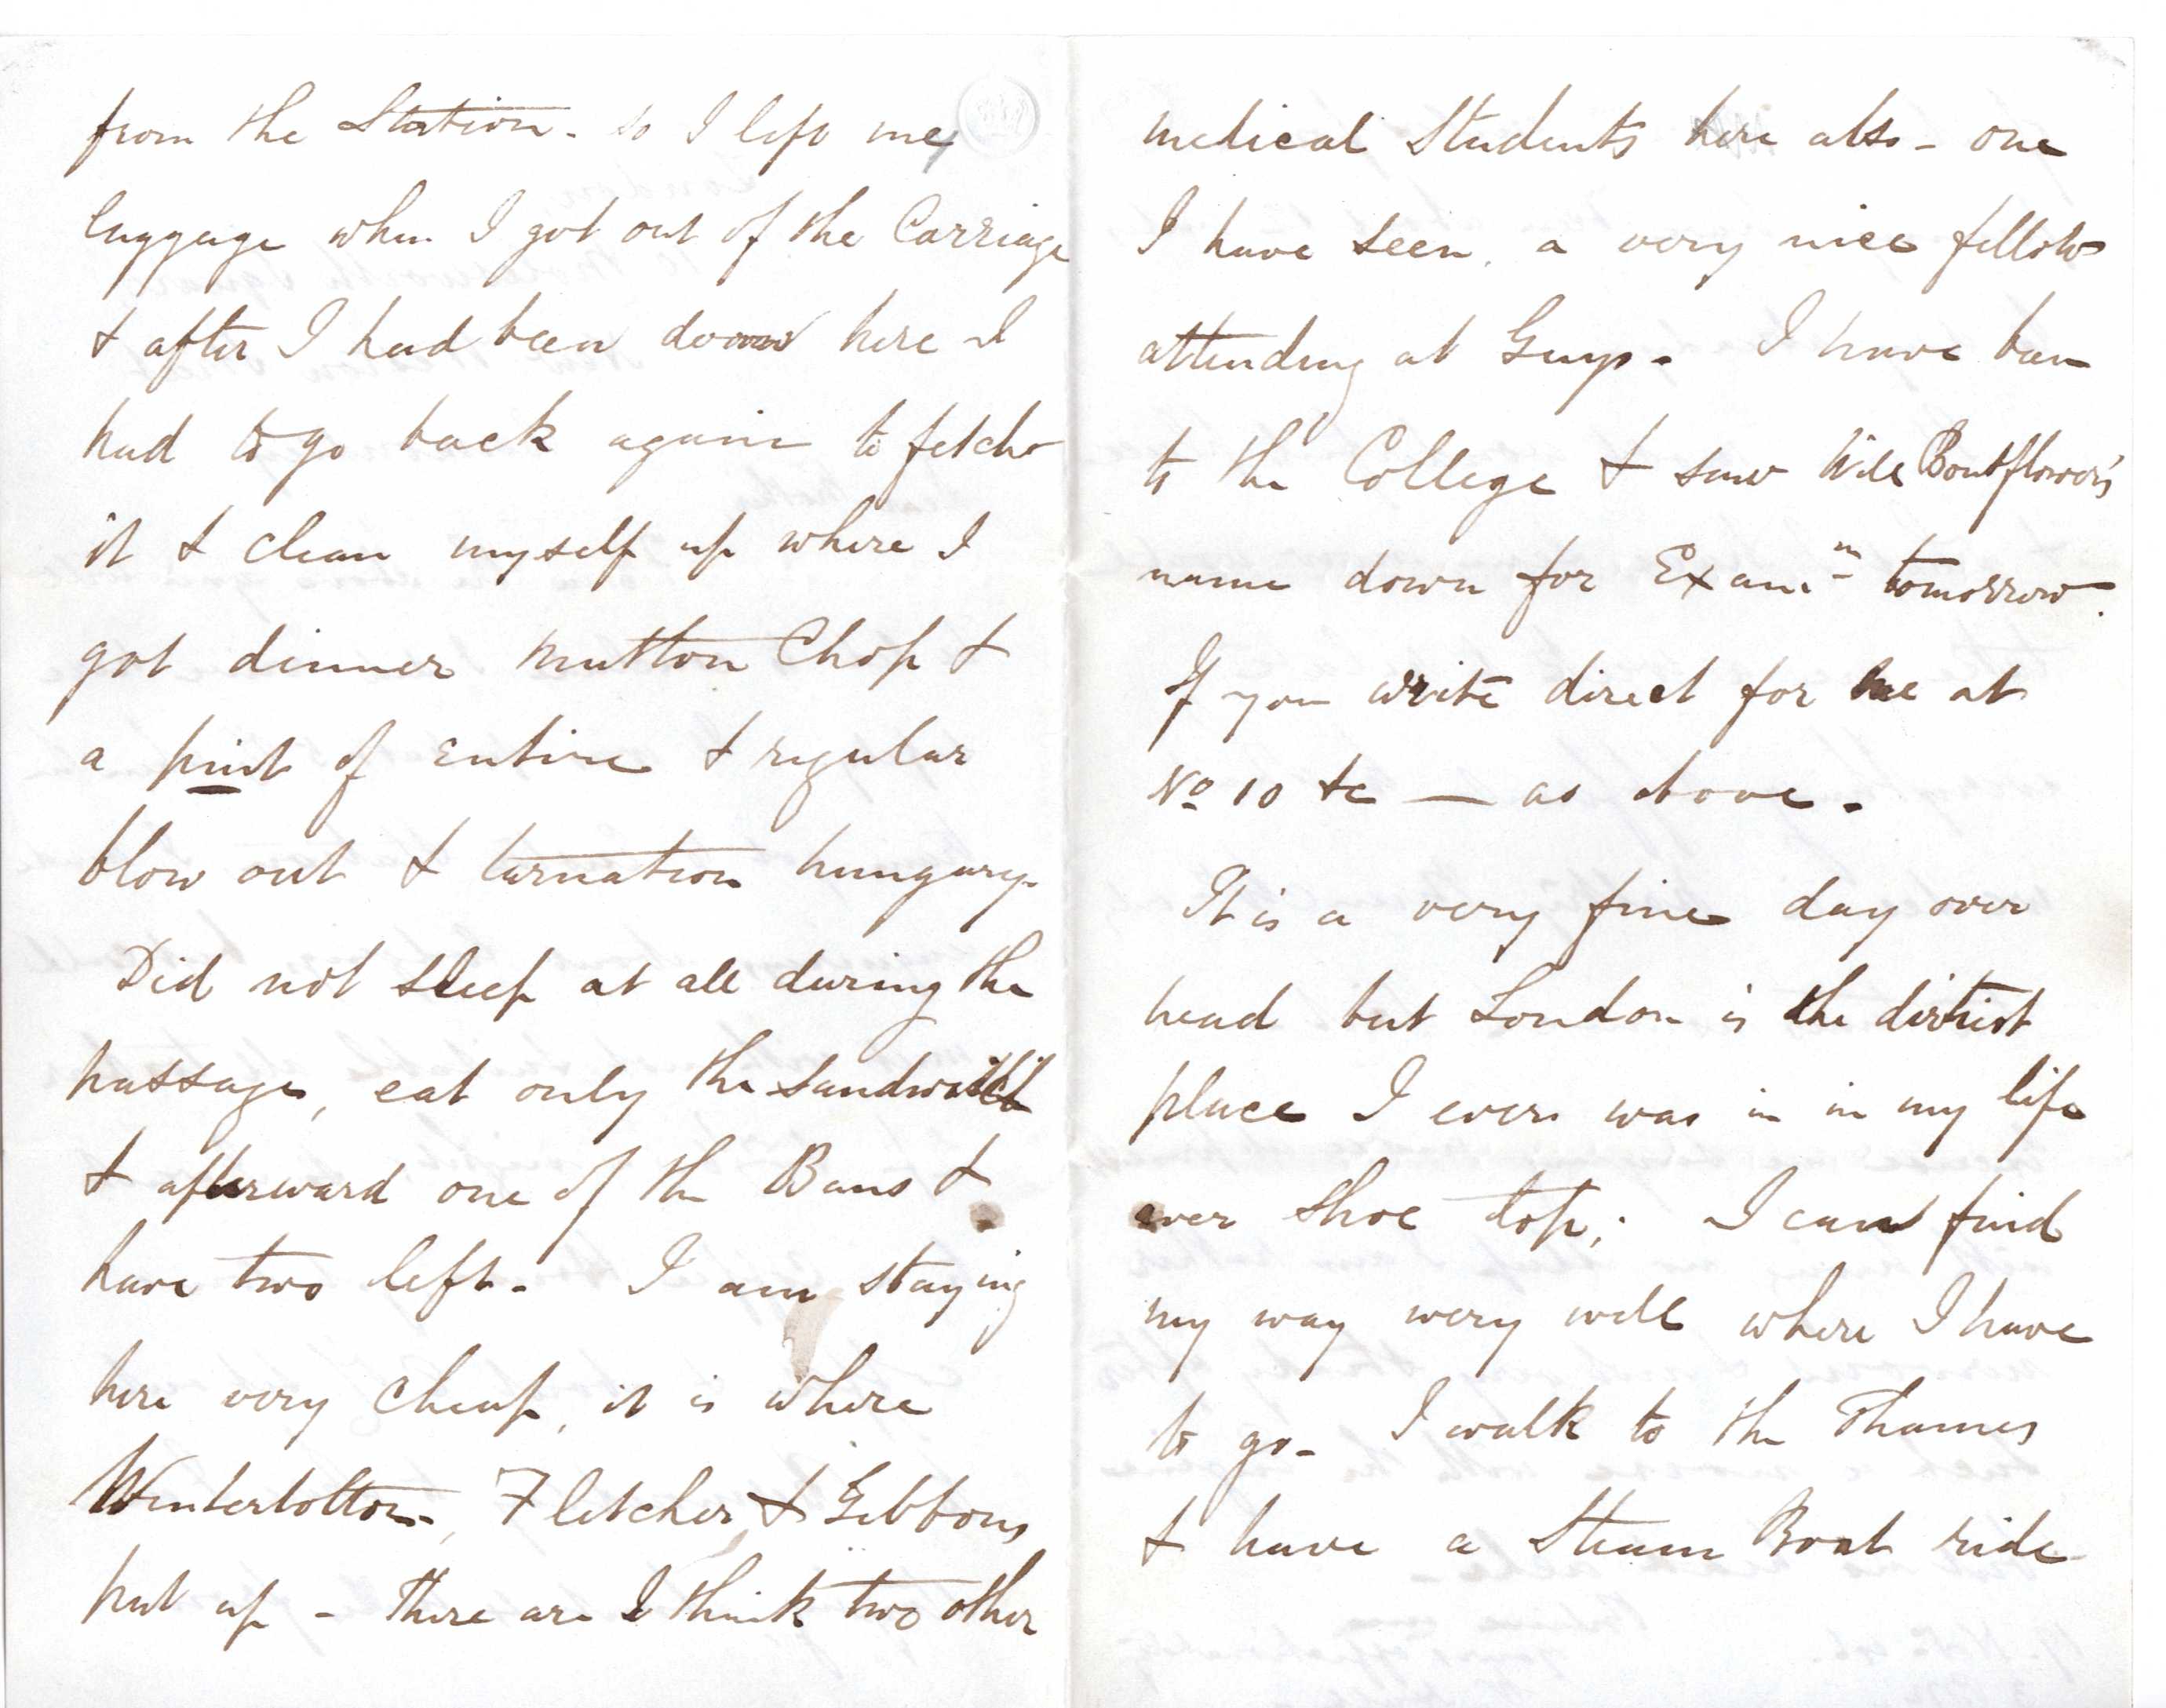 from the Station - so I left my
luggage when I got out of the Carriage
& after I had been down here I
had to go back again to fetch
it & clean myself up where I
got dinner Mutton Chop &
a pint of Entire & regular
blow out & tarnation hungary.
Did not sleep at all during the
passage, eat only the sandwich
& afterward one of the Buns &
have two left - I am staying
here very cheap, it is where
Winterbottom, Fletcher, & Gibbons
put up - there are I think two other
medical Students here also - one
I have seen, a very nice fellow
attending at Guys - I have been
to the College & saw Will Boutflower's
name down for Examn tomorrow.
If you write direct for me at
No 10 &c — as above -
It is a very fine day over
head but London is the dirtiest
place I ever was in in my life
over shoe top; I can find
my way wery well where I have
to go - I walk to the Thames
& have a Steam Boat ride